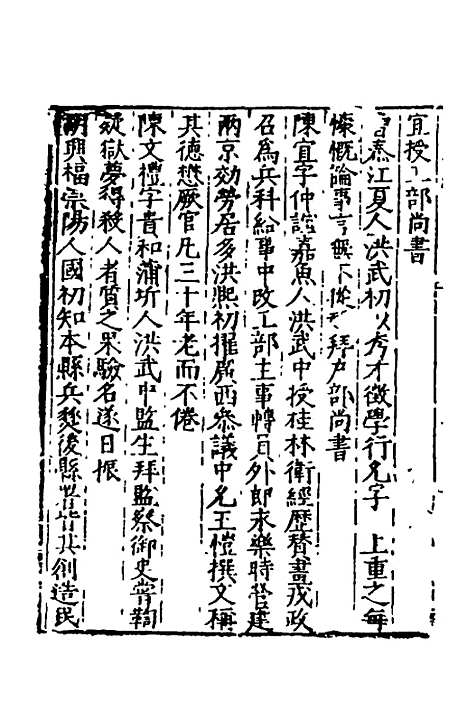 宜授工部尚書
曾泰江夏人洪武初以秀才徵學行尤字　上重之每
慷慨論事言無不從　拜戶部尚書
陳宜字仲誼嘉魚人洪武中授桂林衛經歷替畫戎政
召爲兵科給事中改工部主事轉員外郎永樂時營建
兩京効勞居多洪熙初擢廣西叅議中允王愷撰文稱
其德懋厥官凡三十年老而不倦
陳文禮字貴和蒲圻人洪武中監生拜監察御史嘗鞫
疑獄夢得殺人者質之果驗名遂日振
胡興福崇陽人國初知本縣兵燹後縣署皆其創造民